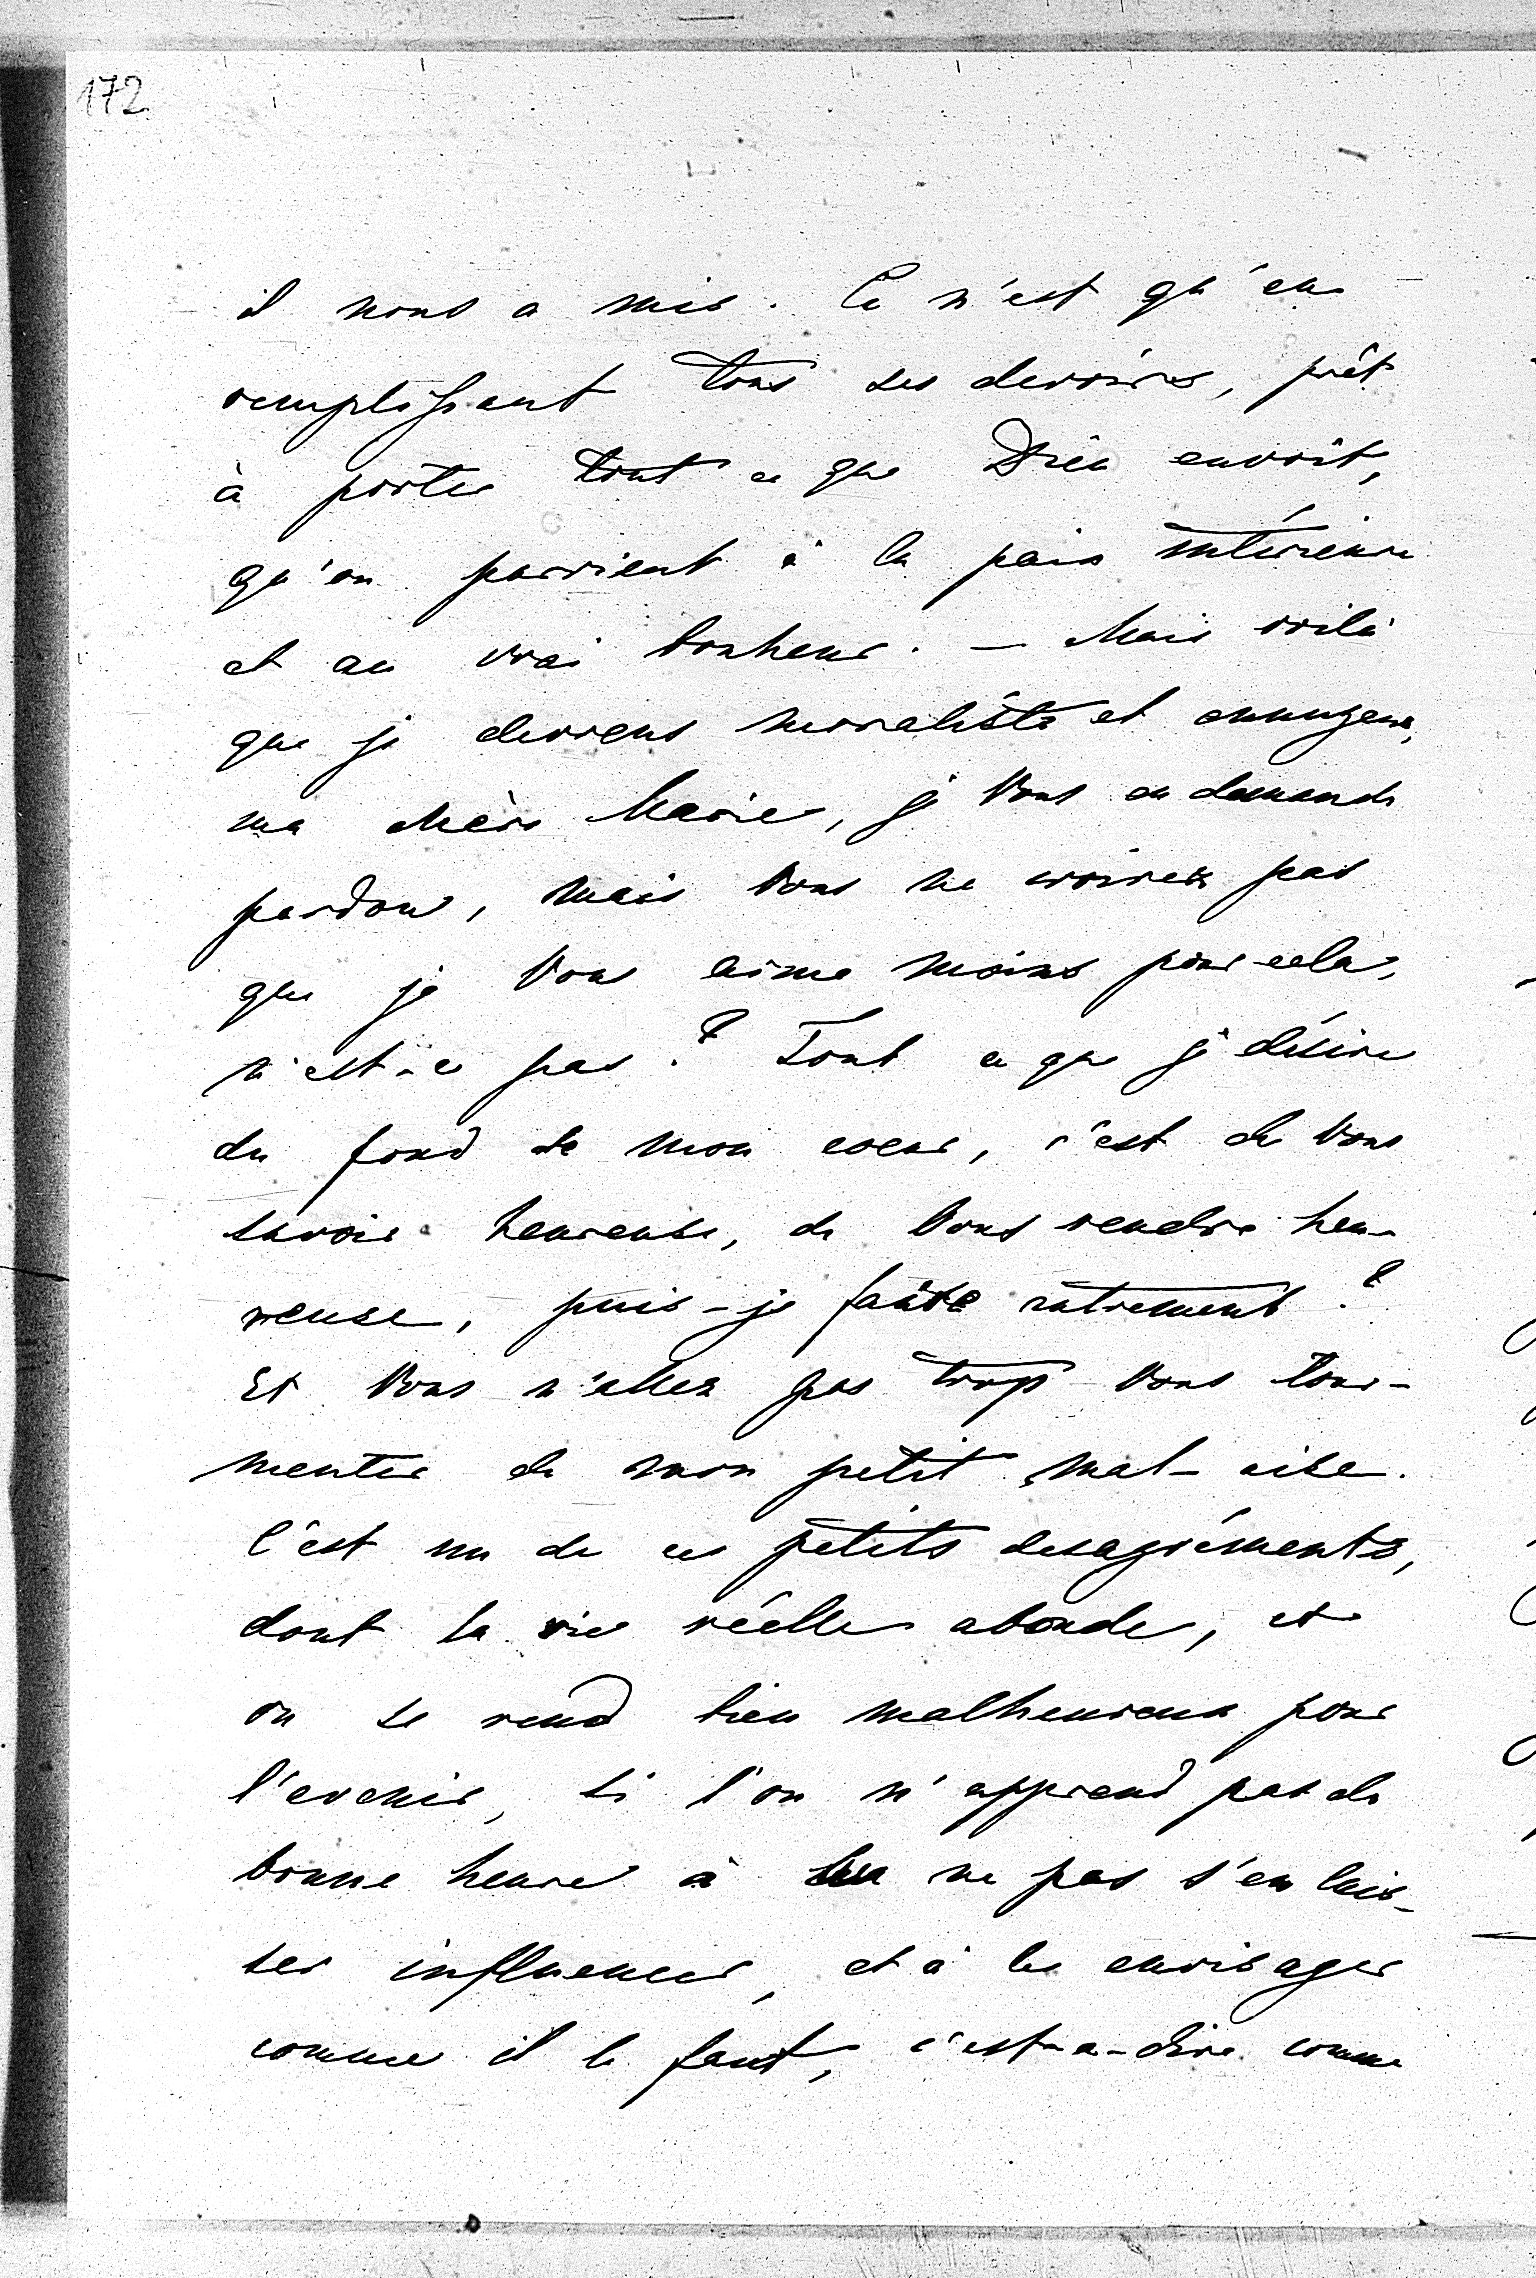 172
il nous a mis. Ce n'est qu'en
remplissant tous ses devoirs, prêt
à porter tout ce que Dieu envoit,
qu'on parvient à la paix intérieure
et au vrai bonheur. — Mais voilà
que je deviens moraliste et ennuyeux,
ma chère Marie, je Vous en demande
pardon, mais Vous ne croirez pas
que je Vous aime moins pour cela,
n'est-ce pas? Tout ce que je désire
du fond de mon coeur, c'est de Vous
savoir heureuse, de Vous rendre heu-
reuse, puis-je faire autrement?
Et Vous n'allez pas trop Vous tour-
menter de mon petit mal-aise.
C'est un de ces petits desagréments,
dont la vie réelle abonde, et
on se rend bien malheureux pour
l'avenir, si l'on n'apprend pas de
bonne heure à ne pas s'en lais-
ser influencer, et à les envisager
comme il le faut, c'est-a-dire comme